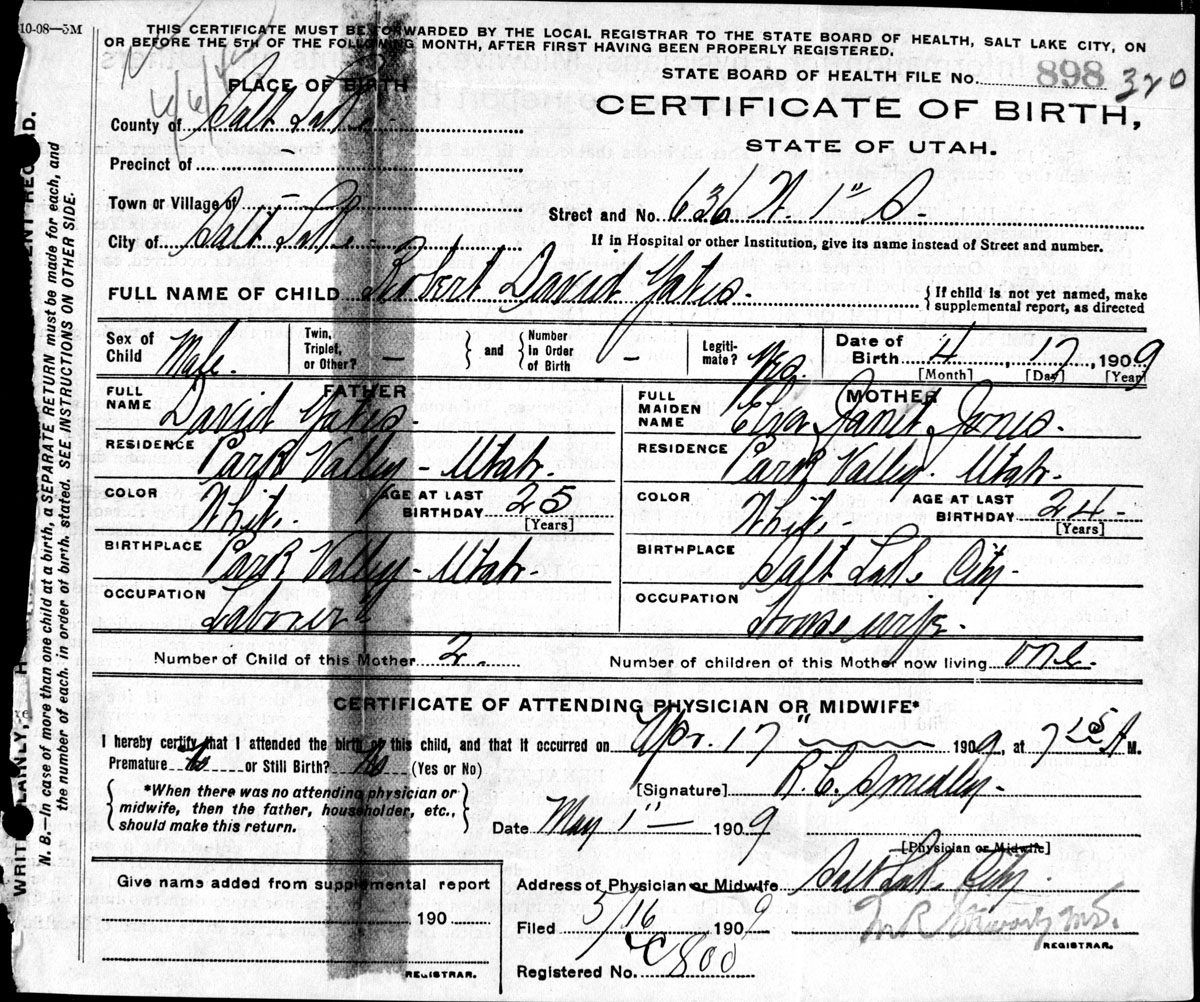 10-08—5M
THIS CERTIFICATE MUST BE FORWARDED BY THE LOCAL REGISTRAR TO THE STATE BOARD OF HEALTH, SALT LAKE CITY, ON
OR BEFORE THE 5TH OF THE FOLLOWING MONTH, AFTER FIRST HAVING BEEN PROPERLY REGISTERED.
STATE BOARD OF HEALTH FILE No. 898 320
PLACE OF BIRTH
CERTIFICATE OF BIRTH,
STATE OF UTAH.
County of Salt Lake
Precinct of —
Town or Village of —
Street and No. 636 W. 1" S.
City of Salt Lake
If in Hospital or other Institution, give its name instead of Street and number.
FULL NAME OF CHILD Robert David Yates.
{ If child is not yet named, make
supplemental report, as directed
Sex of Child Male.
Twin, Triplet, or Other? —
} and { Number In Order of Birth —
Legiti-mate? Yes.
Date of Birth 4, 17, 1909
[Month] [Day] [Year]
FATHER
FULL NAME David Yates.
RESIDENCE Park Valley - Utah.
COLOR White. AGE AT LAST BIRTHDAY 25
[Years]
BIRTHPLACE Park Valley - Utah.
OCCUPATION Laborer
MOTHER
FULL MAIDEN NAME Eliza Janet Jones.
RESIDENCE Park Valley. Utah.
COLOR White- AGE AT LAST BIRTHDAY 24-
[Years]
BIRTHPLACE Salt Lake City.
OCCUPATION Housewife.
Number of Child of this Mother 2.
Number of children of this Mother now living one.
CERTIFICATE OF ATTENDING PHYSICIAN OR MIDWIFE*
I hereby certify that I attended the birth of this child, and that it occurred on Apr. 17" 1909, at 7 25 A M.
Premature No or Still Birth? No (Yes or No)
{ *When there was no attending physician or
midwife, then the father, householder, etc.,
should make this return. }
[Signature] R. C. Smedley.
Date May 1" — 1909
[Physician or Midwife]
Give name added from supplemental report
190
REGISTRAR.
Address of Physician or Midwife Salt Lake City.
Filed 5/16 1909
M.D.
REGISTRAR.
Registered No. 800
N. B.—In case of more than one child at a birth, a SEPARATE RETURN must be made for each, and
the number of each, in order of birth, stated. SEE INSTRUCTIONS ON OTHER SIDE.